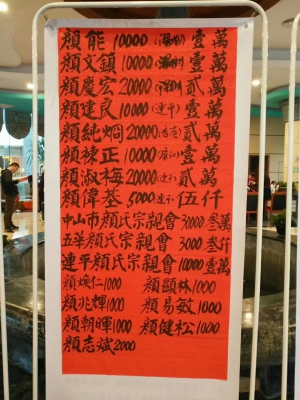 顏能 10000 (深圳) 壹萬
顏文鎮 10000 壹萬
顏慶宏 20000 貳萬
顏建良 10000 (連平) 壹萬
顏純炯 20000 貳萬
顏棟正 10000 壹萬
顏淑梅 20000 (連平) 貳萬
顏偉基 5000 (連平) 伍仟
中山市顏氏宗親會 30000 叁萬
五華顏氏宗親會 3000 叁仟
連平顏氏宗親會 10000 壹萬
顏煥仁 1000 顏顯林 1000
顏兆輝 1000 顏易敏 1000
顏朝暉 1000 顏健松 1000
顏志斌 2000